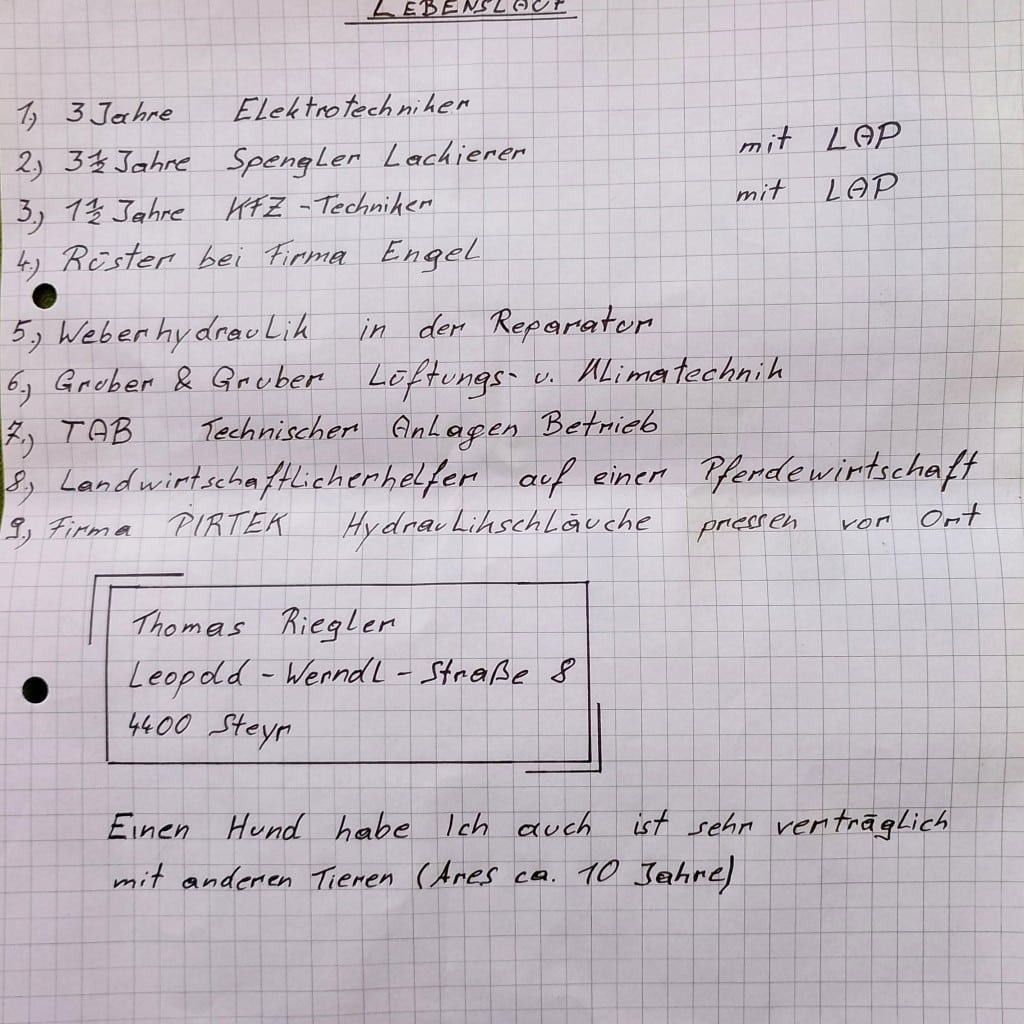 LEBENSLAUF
1,) 3 Jahre Elektrotechniker
2,) 3 1/2 Jahre Spengler Lackierer mit LAP
3.) 1 1/2 Jahre KFZ-Techniker mit LAP
4.) Rüster bei Firma Engel
5.) Weberhydraulik in der Reparatur
6.) Gruber & Gruber Lüftungs- u. Klimatechnik
7.) TAB Technischer Anlagen Betrieb
8.) Landwirtschaftlicherhelfer auf einer Pferdewirtschaft
9.) Firma PIRTEK Hydraulikschläuche pressen vor Ort
Thomas Riegler
Leopold-Werndl-Straße 8
4400 Steyr
Einen Hund habe Ich auch ist sehr verträglich
mit anderen Tieren (Ares ca. 10 Jahre)